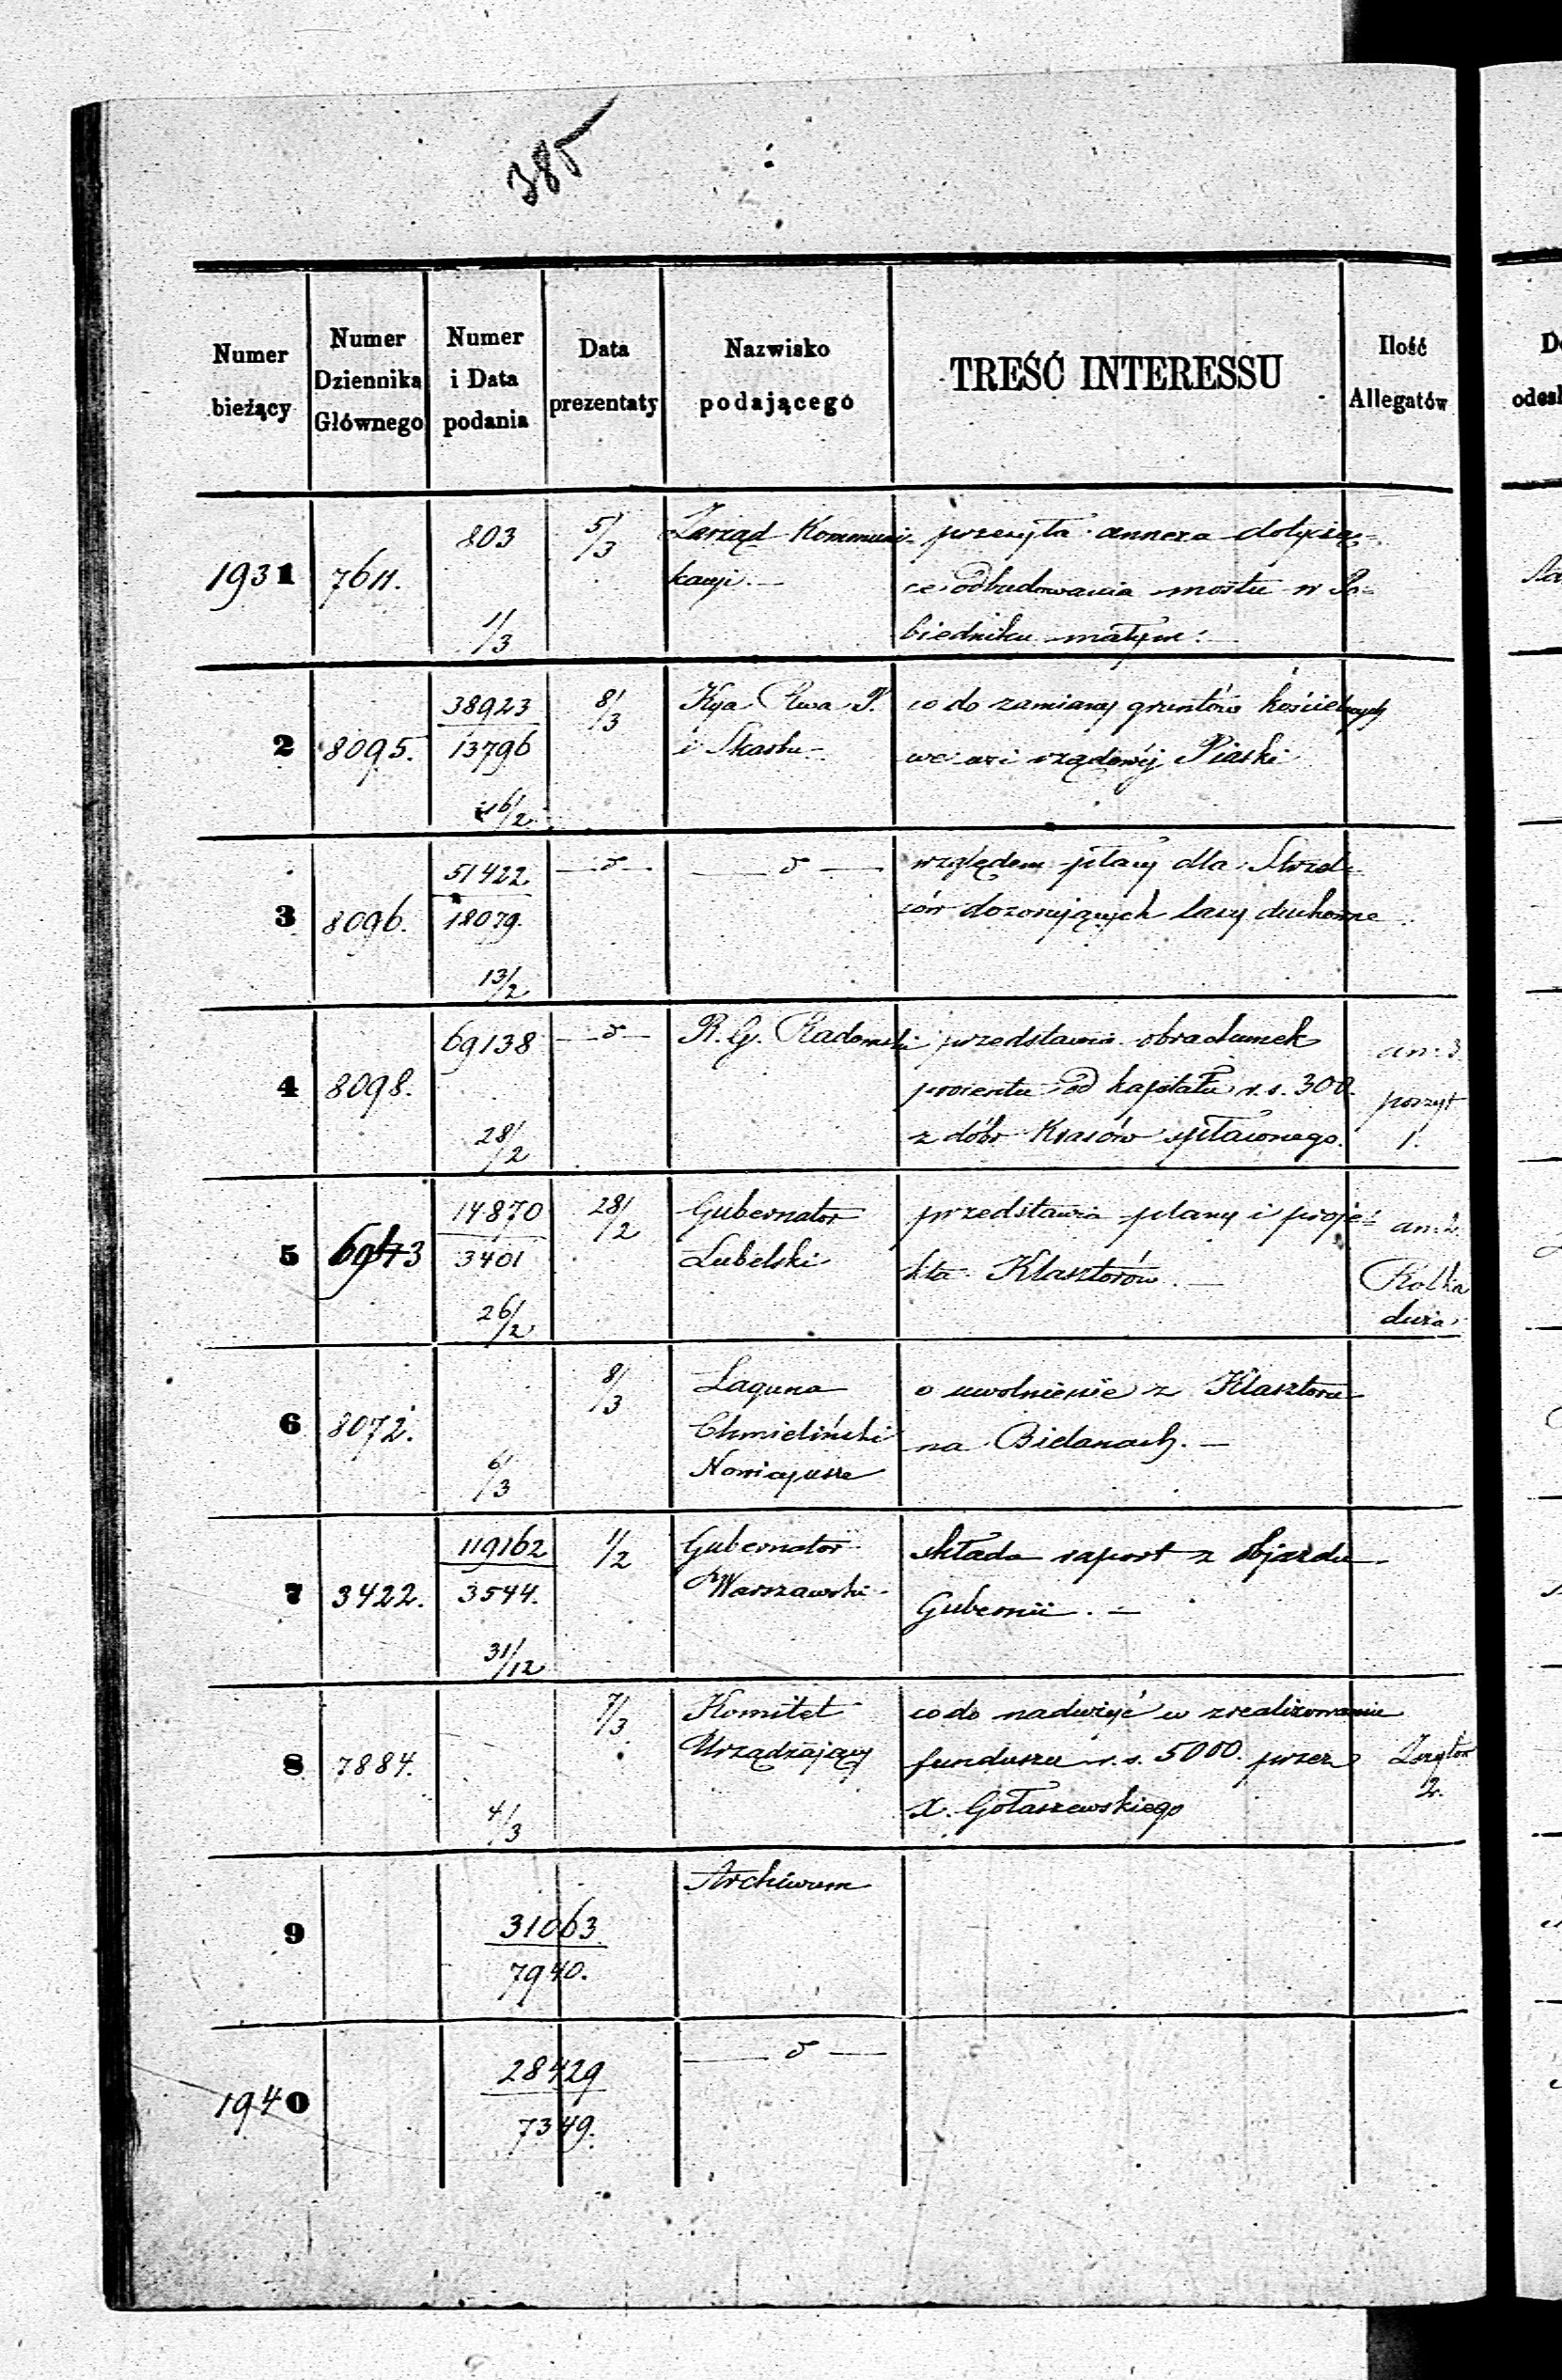 385
Numer bieżący
Numer Dziennika Głównego
Numer i Data podania
Data prezentaty
Nazwisko podającego
TREŚĆ INTERESSU
Ilość Allegatów
1931 7611. 803 1/3 5/3
Zarząd Kommuni-
kacji.—
przesyła annexa dotyczą-
ce odbudowania mostu w Po-
biedniku małym.—
2 8095. 38923 13796 16/2 8/3
Kja Rwa P.
i Skarbu
co do zamiany gruntów kościelnych
we wsi rządowéj Piaski
3 8096. 51422 18079. 13/2 —d— —d—
względem płacy dla Strzel-
ców dozorujących lasy duchowne
4 8098. 69138 28/2 —d—
R. G. Radomski
przedstawia obrachunek
procentu od kapitału r.s. 300.
z dóbr Krasów spłaconego.
an: 3.
poszyt
1.
5 14870 3401 26/2 28/2
Gubernator
Lubelski
przedstawia plany i proje-
kta Klasztorów.—
an: 2.
Rolka
duża
6 8072. 6/3 8/3
Laguna
Chmieliński
Nowicyusze
o uwolnienie z Klasztoru
na Bielanach.—
7 3422. 119162 3544. 31/12 1/2
Gubernator
Warszawski
składa raport z objazdu
Gubernii.—
8 7884. 4/3 7/3
Komitet
Urządzający
co do nadużyć w zrealizowaniu
funduszu r.s. 5000. przez
X. Gołaszewskiego
2.
9 31063 7940.
Archiwum
1940 28429 7349. —d—